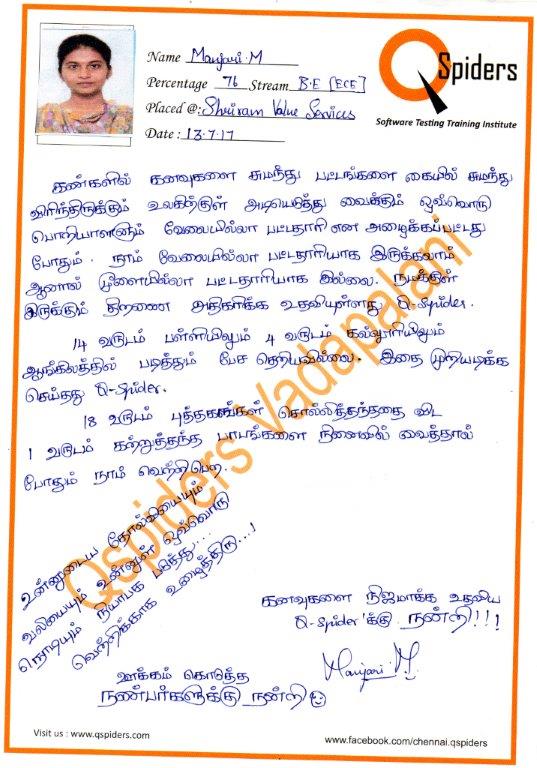 Name Manjari.M
Percentage 76 Stream B.E [ECE]
Placed @: Shriram Value Services
Date : 13.7.17
QSpiders
Software Testing Training Institute
கண்களில் கனவுகளை சுமந்து பட்டங்களை கையில் சுமந்து
விரிந்திருக்கும் உலகிற்குள் அடியெடுத்து வைக்கும் ஒவ்வொரு
பொறியாளனும் வேலையில்லா பட்டதாரி என அழைக்கப்பட்டது
போதும். நாம் வேலையில்லா பட்டதாரியாக இருக்கலாம்
ஆனால் மூளையில்லா பட்டதாரியாக இல்லை. நமக்குள்
இருக்கும் திறனை அதிகரிக்க உதவியுள்ளது Q-Spider.
14 வருடம் பள்ளியிலும் 4 வருடம் கல்லூரியிலும்
ஆங்கிலத்தில் படித்தும் பேச தெரியவில்லை. இதை முறியடிக்க
செய்தது Q-Spider.
18 வருடம் புத்தகங்கள் சொல்லித்தந்ததை விட
1 வருடம் கற்றுத்தந்த பாடங்களை நினைவில் வைத்தால்
போதும் நாம் வெற்றிபெற.
உன்னுடைய தோல்வியையும்
வலியையும் உன்னுள் ஒவ்வொரு
நொடியும் நியாபக படுத்து...
வெற்றிக்காக உழைத்திரு...!
கனவுகளை நிஜமாக்க உதவிய
Q-Spider'க்கு நன்றி!!!
Manjari M.
ஊக்கம் கொடுத்த
நண்பர்களுக்கு நன்றி
Qspiders Vadapalani
Visit us : www.qspiders.com
www.facebook.com/chennai.qspiders